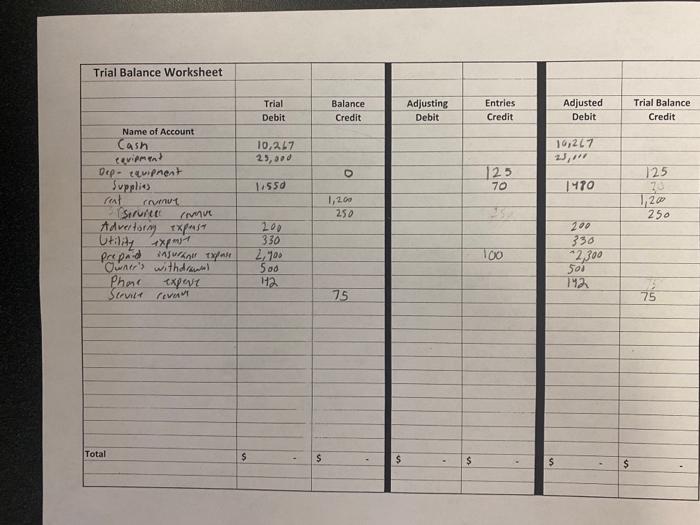 Trial Balance Worksheet
Trial Balance Adjusting Entries Adjusted Trial Balance
Debit Credit Debit Credit Debit Credit
Name of Account
Cash 10,267 10,267
equipment 25,000
Dep- equipment 0 125 125
Supplies 1,550 70 1480
rent revenue 1,200 1,200
Service revenue 250 250
Advertising expense 200 200
Utility expense 330 330
prepaid insurance expense 100 2,300
Owner's withdrawal 500 500
Phone expense 142 142
Service revenue 75 75
Total $ - $ - $ - $ - $ - $ -